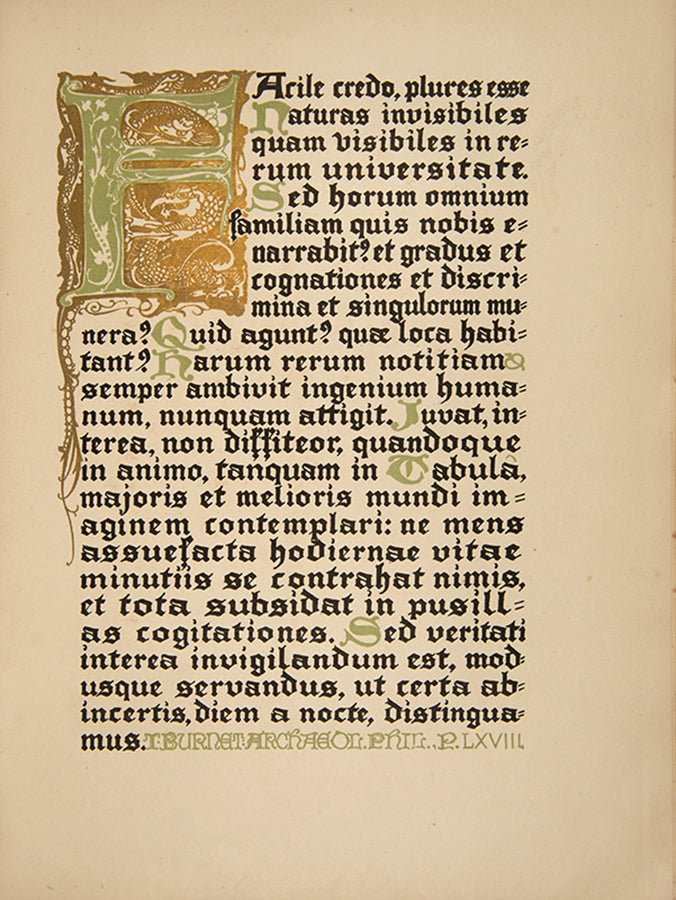 FAcile credo, plures esse
Naturas invisibiles
quam visibiles in re=
rum universitate.
Sed horum omnium
familiam quis nobis e=
narrabit? et gradus et
cognationes et discri=
mina et singulorum mu=
nera? Quid agunt? quæ loca habi=
tant? Harum rerum notitiam
semper ambivit ingenium huma=
num, nunquam attigit. Juvat, in=
terea, non diffiteor, quandoque
in animo, tanquam in Tabulâ,
majoris et melioris mundi im=
aginem contemplari: ne mens
assuefacta hodiernae vitae
minutiis se contrahat nimis,
et tota subsidat in pusill=
as cogitationes. Sed veritati
interea invigilandum est, mod=
usque servandus, ut certa ab=
incertis, diem a nocte, distingua=
mus. T. BURNET. ARCHAEOL. PHIL., P. LXVIII.